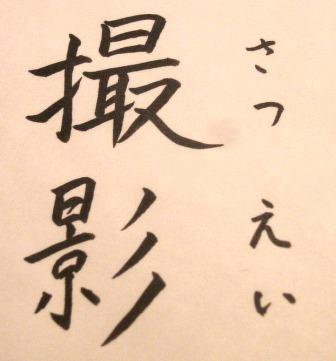 撮影
さつえい